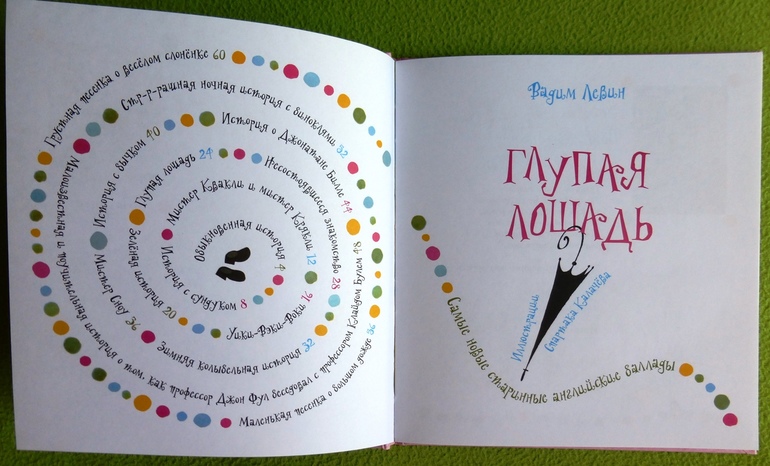 Обыкновенная история 4
История с сундуком 8
Мистер Квакли и мистер Крякли 12
Уики-Вэки-Воки 16
Зелёная история 20
Глупая лошадь 24
Несостоявшееся знакомство 28
Зимняя колыбельная история 32
Мистер Сноу 36
История с бычком 40
История о Джонатане Билле 44
Малоизвестная и поучительная история о том, как профессор Джон Фул беседовал с профессором Клайдом Булем 48
Стр-р-рашная ночная история с биноклями 52
Маленькая песенка о большом дожде 56
Грустная песенка о весёлом слонёнке 60
Вадим Левин
ГЛУПАЯ
ЛОШАДЬ
Иллюстрации
Спартака Калачёва
Самые новые старинные английские баллады